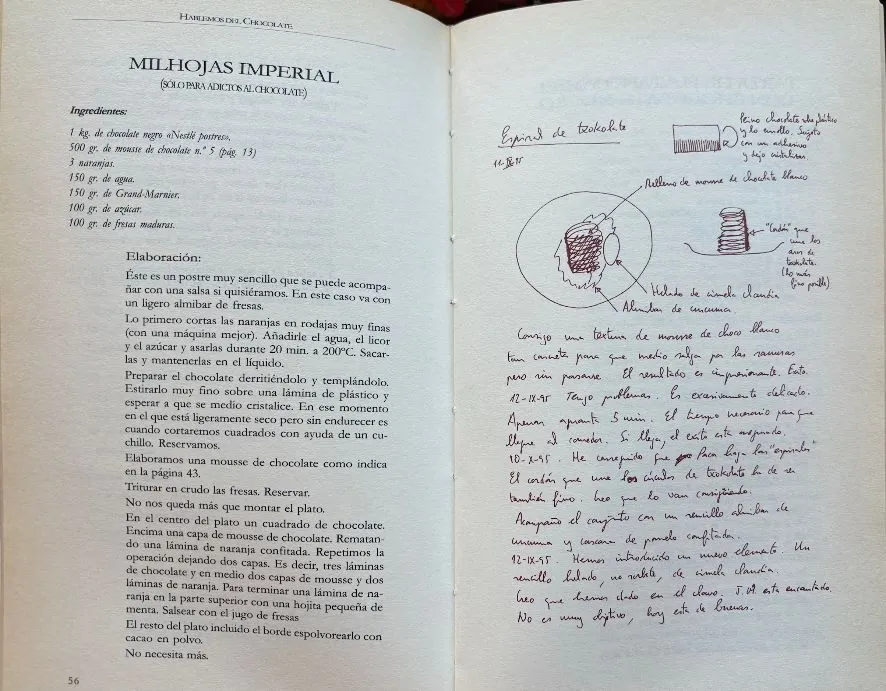 HABLEMOS DEL CHOCOLATE
MILHOJAS IMPERIAL
(SÓLO PARA ADICTOS AL CHOCOLATE)
Ingredientes:
1 kg. de chocolate negro «Nestlé postres».
500 gr. de mousse de chocolate n.º 5 (pág. 13)
3 naranjas.
150 gr. de agua.
150 gr. de Grand-Marnier.
100 gr. de azúcar.
100 gr. de fresas maduras.
Elaboración:
Éste es un postre muy sencillo que se puede acompa-
ñar con una salsa si quisiéramos. En este caso va con
un ligero almibar de fresas.
Lo primero cortas las naranjas en rodajas muy finas
(con una máquina mejor). Añadirle el agua, el licor
y el azúcar y asarlas durante 20 min. a 200ºC. Sacar-
las y mantenerlas en el líquido.
Preparar el chocolate derritiéndolo y templándolo.
Estirarlo muy fino sobre una lámina de plástico y
esperar a que se medio cristalice. En ese momento
en el que está ligeramente seco pero sin endurecer es
cuando cortaremos cuadrados con ayuda de un cu-
chillo. Reservamos.
Elaboramos una mousse de chocolate como indica
en la página 43.
Triturar en crudo las fresas. Reservar.
No nos queda más que montar el plato.
En el centro del plato un cuadrado de chocolate.
Encima una capa de mousse de chocolate. Rematan-
do una lámina de naranja confitada. Repetimos la
operación dejando dos capas. Es decir, tres láminas
de chocolate y en medio dos capas de mousse y dos
láminas de naranja. Para terminar una lámina de na-
ranja en la parte superior con una hojita pequeña de
menta. Salsear con el jugo de fresas
El resto del plato incluido el borde espolvorearlo con
cacao en polvo.
No necesita más.
56
Espiral de txokolate
11.IX.95
Peino chocolate sobre plástico
y lo enrollo. Sujeto
con un adhesivo
y dejo cristalizar.
Relleno de mousse de chocolate blanco
"Cordón" que
une los
aros de
txokolate.
(Lo más
fino posible)
Helado de ciruela claudia
Almibar de curcuma
Consigo una textura de mousse de choco blanco
tan concreta para que medio salga por las ranuras
pero sin pasarse. El resultado es impresionante. Éxito.
12-IX-95. Tengo problemas. Es excesivamente delicado.
Apenas aguanta 5 min. El tiempo necesario para que
llegue al comedor. Si llega, el exito esta asegurado.
10-X-95. He conseguido que Paco haga las "espirales"
El cordón que une los círculos de txokolate ha de ser
también fino. Creo que lo van consiguiendo.
Acompaño el conjunto con un sencillo almibar de
curcuma y cascara de pomelo confitada.
12-IX-95. Hemos introducido un nuevo elemento. Un
sencillo helado, no sorbete, de ciruela claudia.
Creo que hemos dado en el clavo. J.M. esta encantado.
No es muy objetivo, hoy esta de buenas.